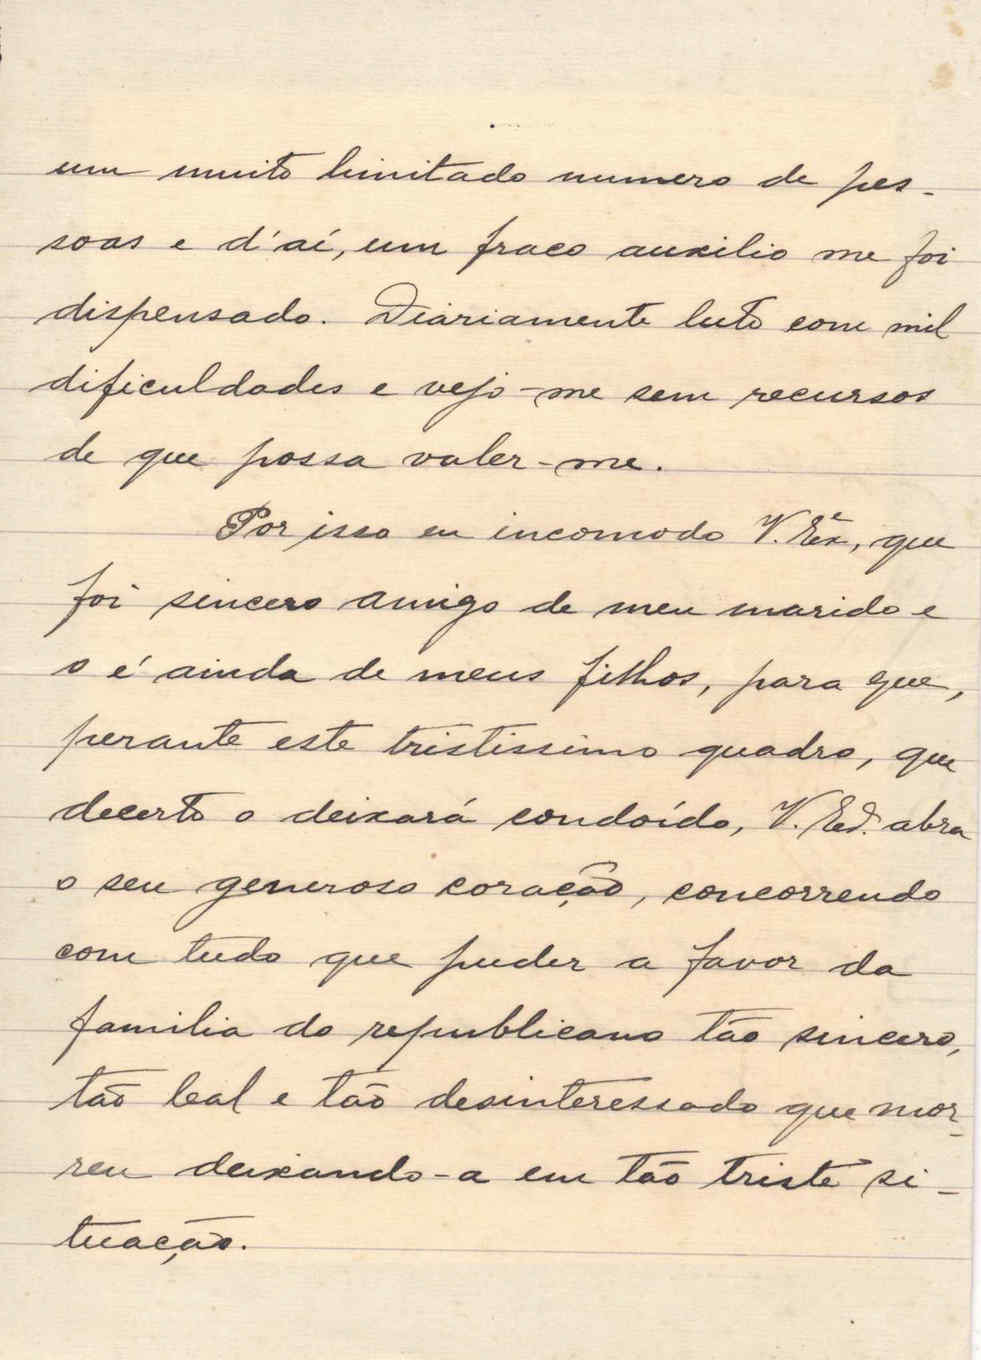 um muito limitado numero de pes-
soas e d'aí, um fraco auxilio me foi
dispensado. Diariamente luto com mil
dificuldades e vejo-me sem recursos
de que possa valer-me.
Por isso eu incomodo V. Exª, que
foi sincero amigo de meu marido e
o é ainda de meus filhos, para que,
perante este tristissimo quadro, que
decerto o deixará condoído, V. Exª. abra
o seu generoso coração, concorrendo
com tudo que puder a favor da
familia do republicano tão sincero,
tão leal e tão desinteressado que mor-
reu deixando-a em tão triste si-
tuação.